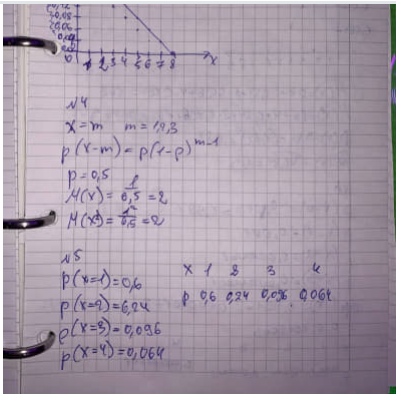 0,08
0,06
0 1 2 3 4 5 6 7 8 x
№4
X=m m=1,2,3
p(x=m)=p(1-p)^m-1
p=0,5
M(x)=1/0,5=2
M(x²)=1²/0,5=2
№5
p(x=1)=0,6
p(x=2)=0,24
p(x=3)=0,096
p(x=4)=0,064
x 1 2 3 4
p 0,6 0,24 0,096 0,064